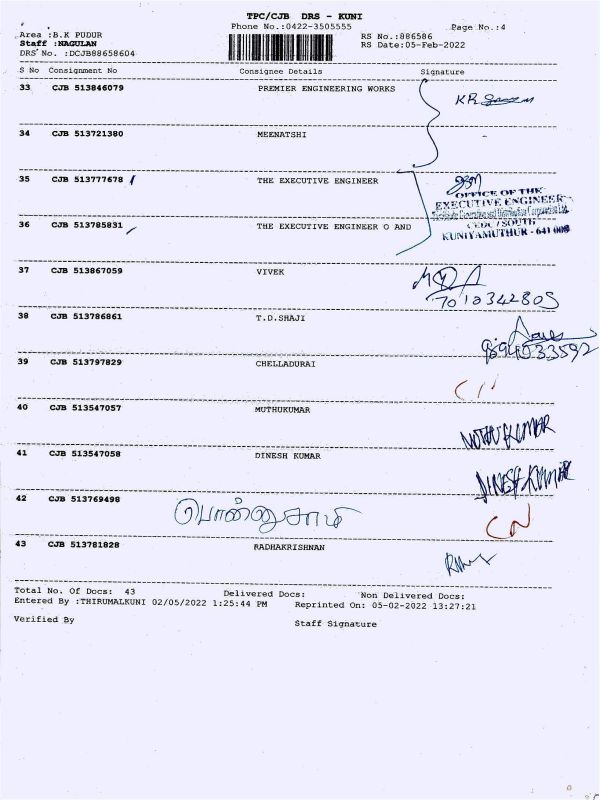 TPC/CJB DRS - KUNI
Phone No.:0422-3505555
Page No.:4
Area :B.K PUDUR
Staff :NAGULAN
DRS No. :DCJB88658604
RS No.:886586
RS Date:05-Feb-2022
S No Consignment No Consignee Details Signature
33 CJB 513846079 PREMIER ENGINEERING WORKS
34 CJB 513721380 MEENATSHI
35 CJB 513777678 THE EXECUTIVE ENGINEER
OFFICE OF THE
EXECUTIVE ENGINEER
CEDC / SOUTH
KUNIYAMUTHUR - 641 008
36 CJB 513785831 THE EXECUTIVE ENGINEER O AND
37 CJB 513867059 VIVEK
7010342805
38 CJB 513786861 T.D.SHAJI
39 CJB 513797829 CHELLADURAI
40 CJB 513547057 MUTHUKUMAR
MUTHUKUMAR
41 CJB 513547058 DINESH KUMAR
DINESH KUMAR
42 CJB 513769498 பொன்னுசாமி CN
43 CJB 513781828 RADHAKRISHNAN
Total No. Of Docs: 43 Delivered Docs: Non Delivered Docs:
Entered By :THIRUMALKUNI 02/05/2022 1:25:44 PM Reprinted On: 05-02-2022 13:27:21
Verified By Staff Signature